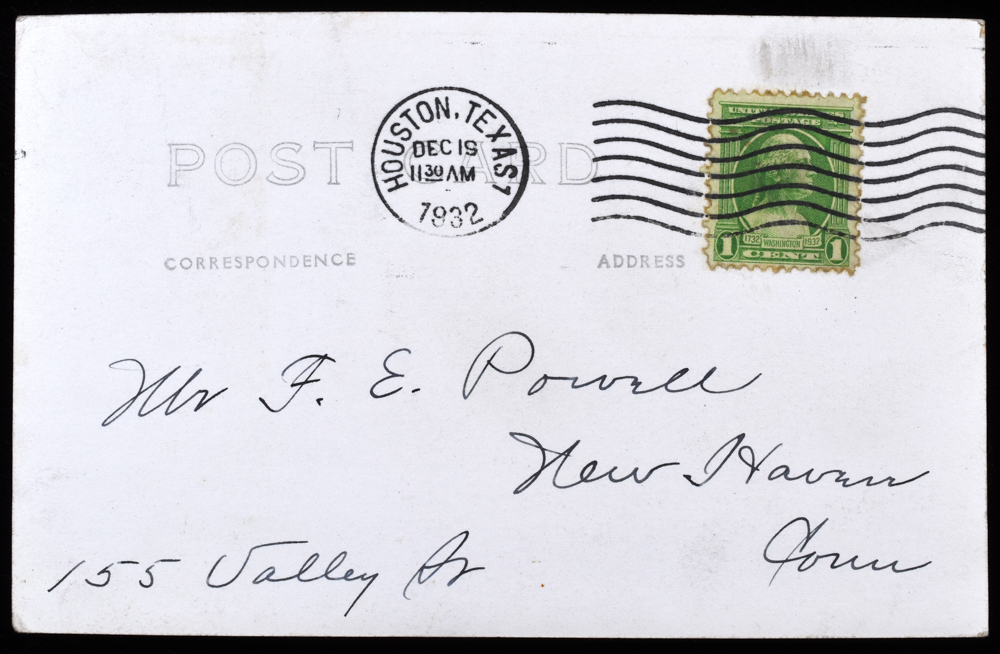 POST CARD
HOUSTON, TEXAS 1
DEC 19
11 30 AM
1932
POSTAGE
1732 WASHINGTON 1932
1 CENT 1
CORRESPONDENCE
ADDRESS
Mr F. E. Powell
New Haven
Conn
155 Valley St